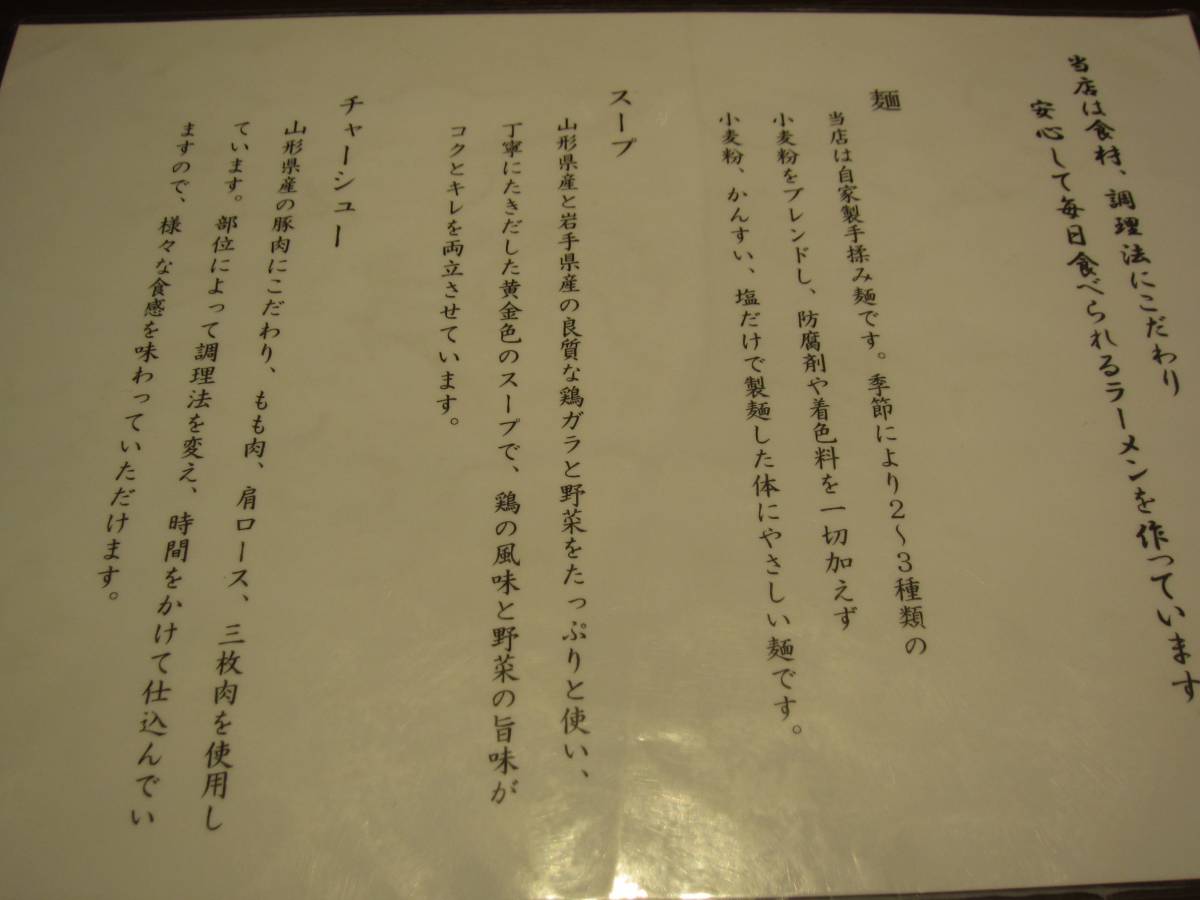 当店は食材、調理法にこだわり
安心して毎日食べられるラーメンを作っています
麺
当店は自家製手揉み麺です。季節により2〜3種類の
小麦粉をブレンドし、防腐剤や着色料を一切加えず
小麦粉、かんすい、塩だけで製麺した体にやさしい麺です。
スープ
山形県産と岩手県産の良質な鶏ガラと野菜をたっぷりと使い、
丁寧にたきだした黄金色のスープで、鶏の風味と野菜の旨味が
コクとキレを両立させています。
チャーシュー
山形県産の豚肉にこだわり、もも肉、肩ロース、三枚肉を使用し
ています。部位によって調理法を変え、時間をかけて仕込んでい
ますので、様々な食感を味わっていただけます。